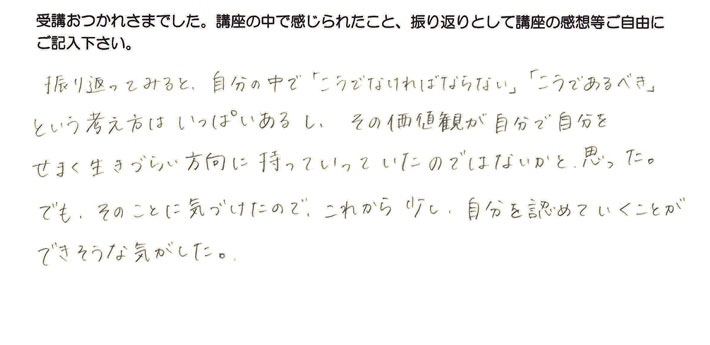 受講おつかれさまでした。講座の中で感じられたこと、振り返りとして講座の感想等ご自由に
ご記入下さい。
振り返ってみると、自分の中で「こうでなければならない」「こうであるべき」
という考え方は いっぱいあるし、その価値観が自分で自分を
せまく生きづらい方向に持っていっていたのではないかと、思った。
でも、そのことに気づけたので、これから少し、自分を認めていくことが
できそうな気がした。